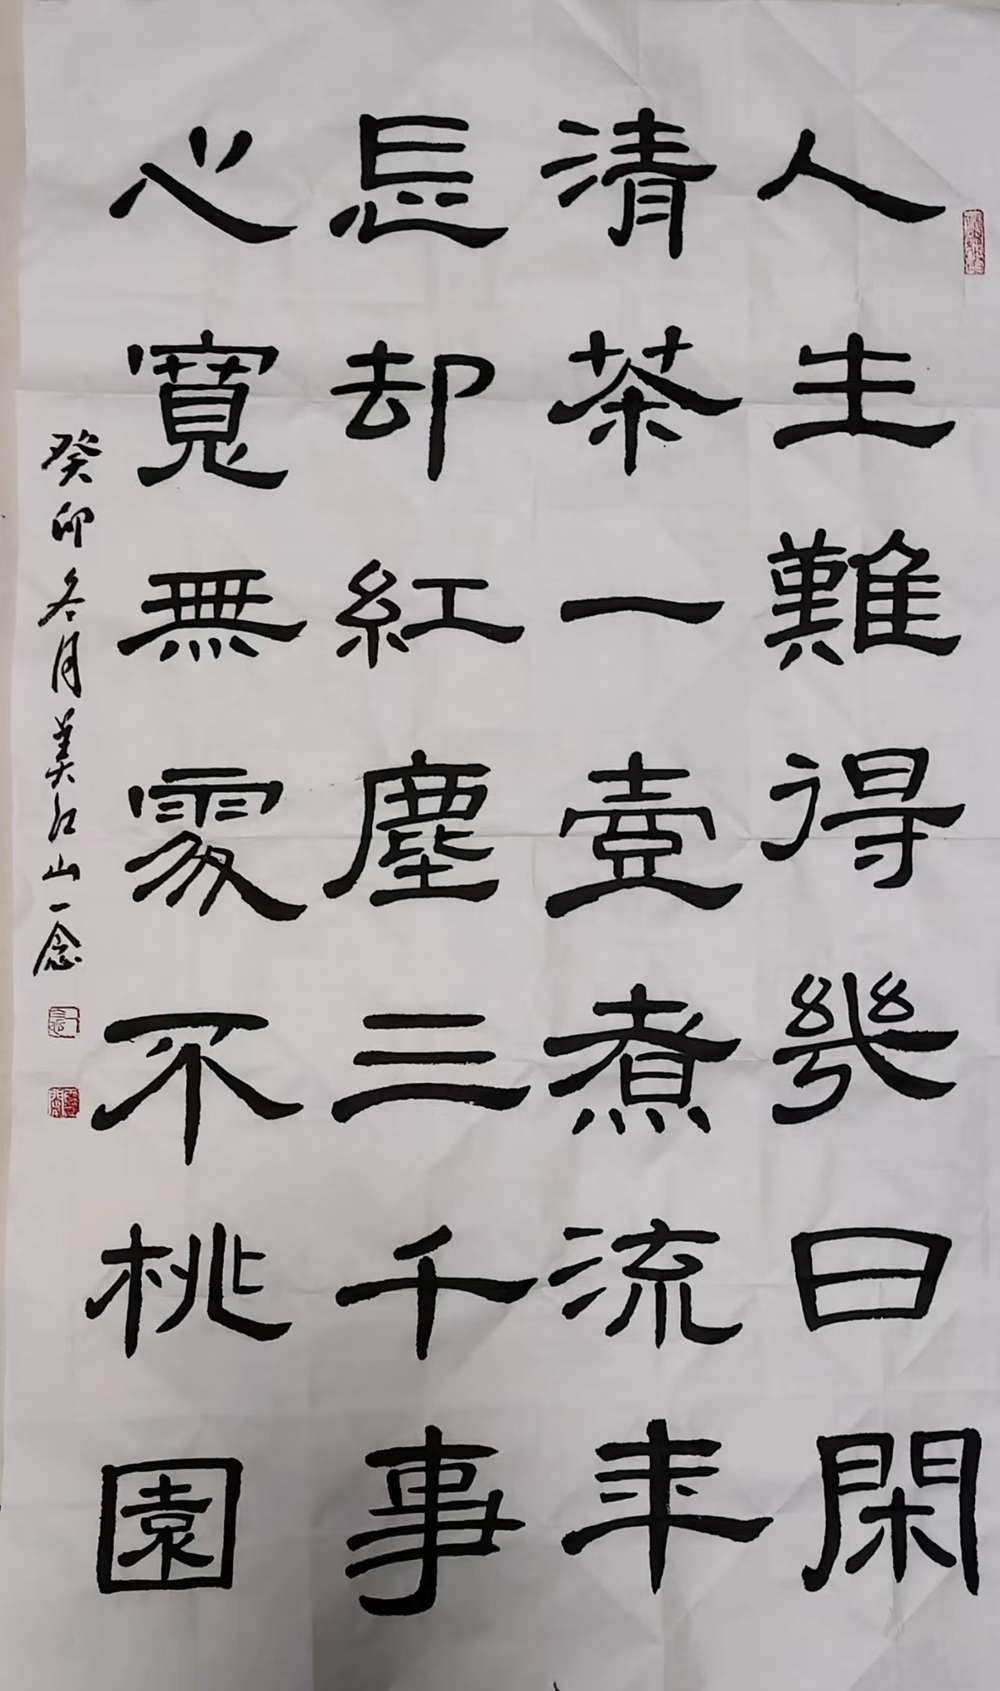 人生難得幾日閑
清茶一壹煮流年
忘却紅塵三千事
心寬無處不桃園
癸卯冬月美江山一念